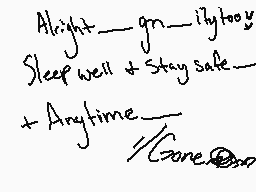 Alright__gn__ily too
Sleep well + Stay safe__
+ Anytime__
//Gone